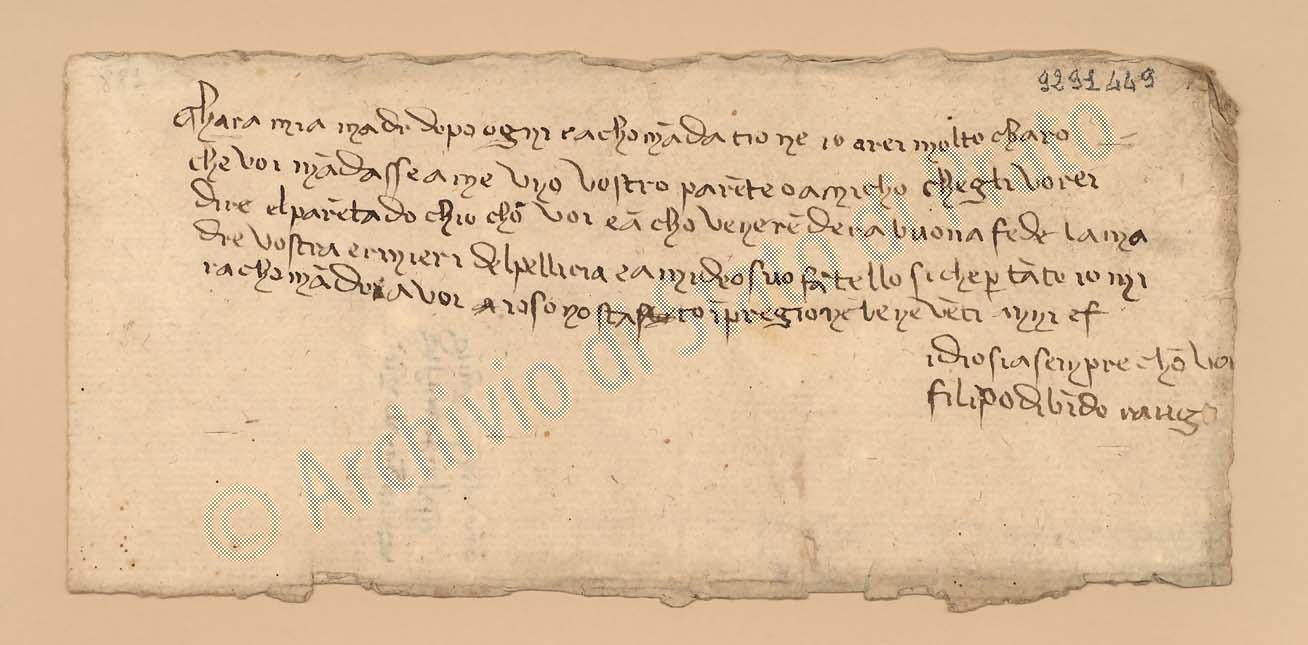 9291449
Chara mia madre dopo ogni rachomādatione io arei molto charo
che voi mādasse a me uno vostro parēte o amicho che gli vorei
dire el parētado chio chō voi e ācho venerēde ra buona fede la ma
dre vostra e rinieri del pelliccia e amideo suo fātello si che p tāto io mi
rachomādo a voi io sono stato ī pregione bene vēti mm e
idio sia senpre chō voi
filipo di bīdo
© Archivio di Stato di Prato